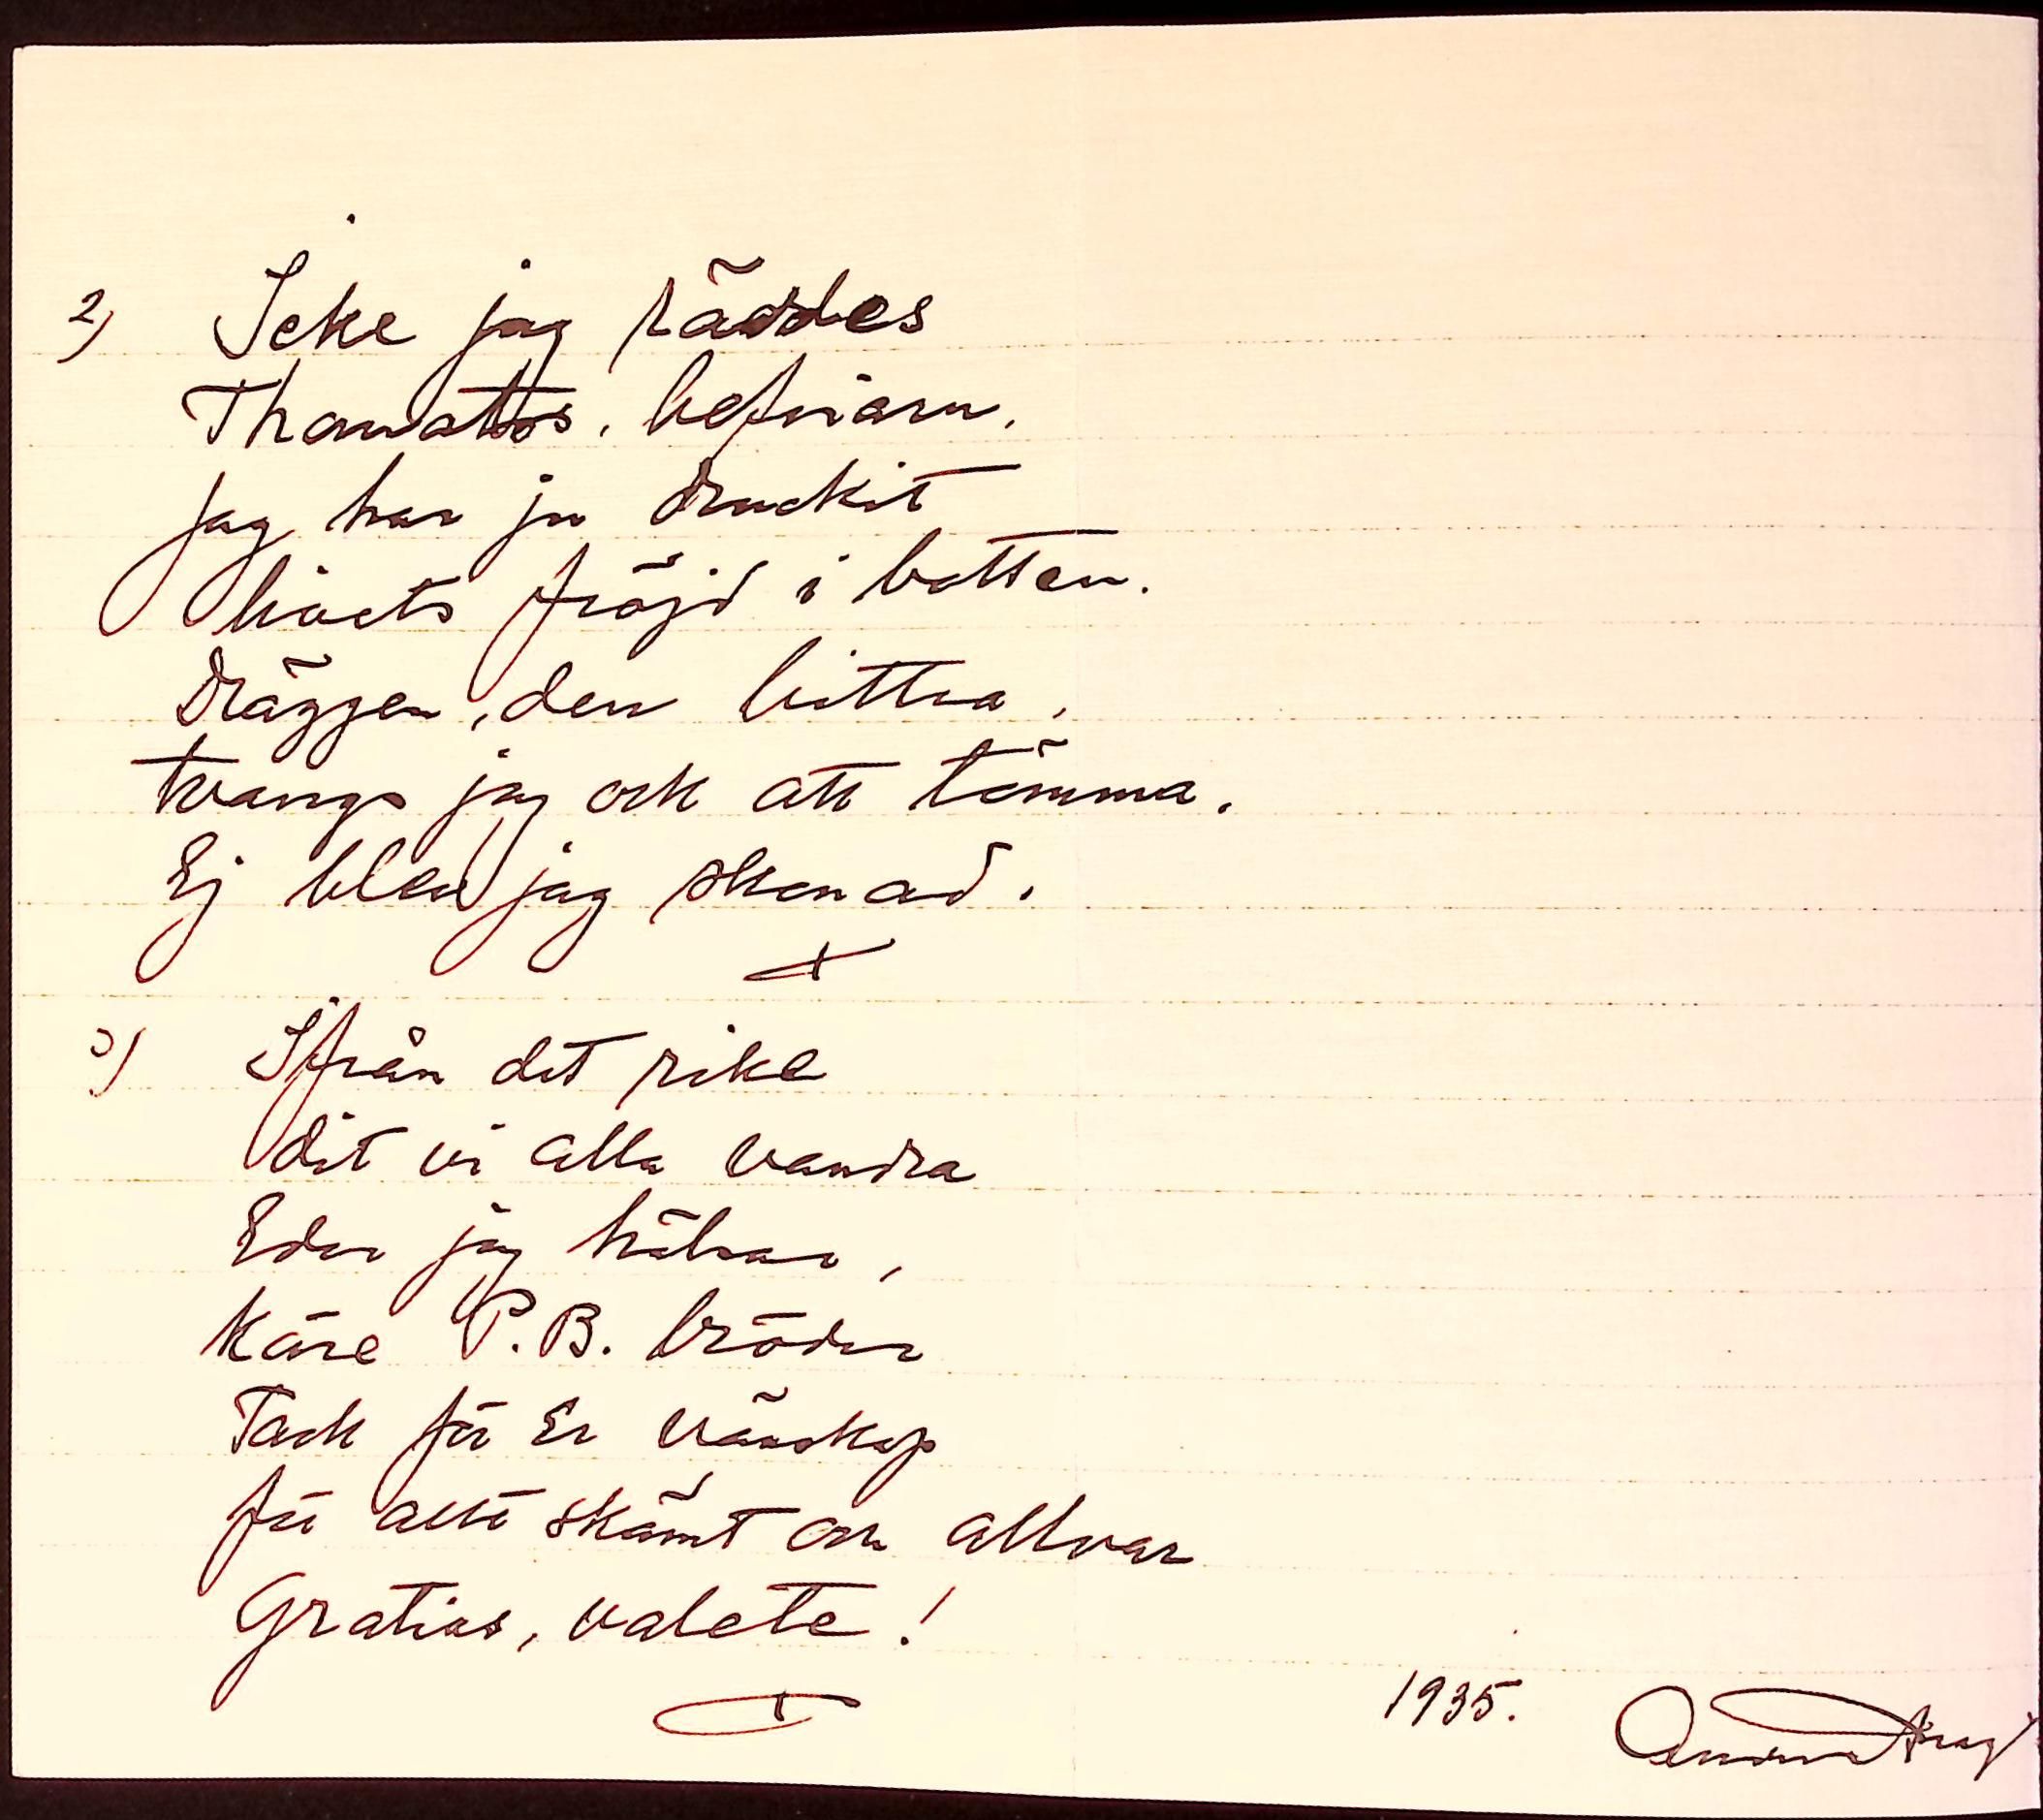 2) Icke jag räddes
Thanatos, befriarn,
jag har ju druckit
livets fröjd i botten.
Dräggen, den bittra,
tvangs jag ock att tömma.
Ej blev jag skonad.
3) Ifrån det rike
dit vi alla vandra
Eder jag hälsar,
Käre P.B. bröder
Tack för Er vänskap
för allt skämt och allvar
Gratias, valete!
1935.